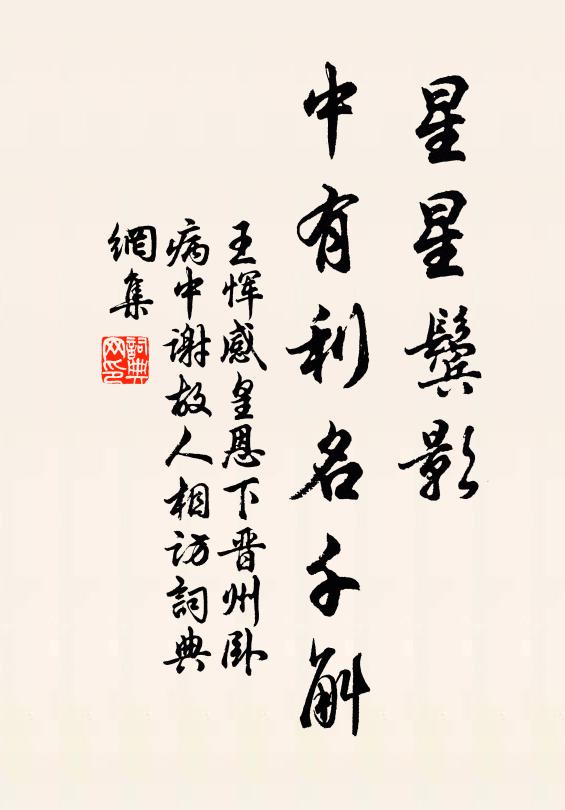 星星鬓影
中有利名千斛
王恽感皇恩下晋州卧
病中谢故人相访词典
網集
詞典
网印